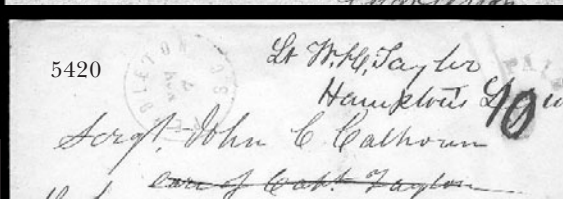 5420
Lt W. H. Taylor
Hampton's
PAI
10
Sergt. John C. Calhoun
care of Capt. Taylor